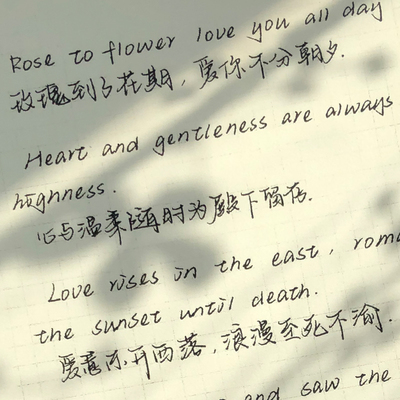 Rose to flower love you all day
玫瑰到了花期，爱你不分朝夕.
Heart and gentleness are always
highness.
心与温柔随时为殿下留存.
Love rises in the east,
the sunset until death.
爱意东升西落，浪漫至死不渝.
and saw the